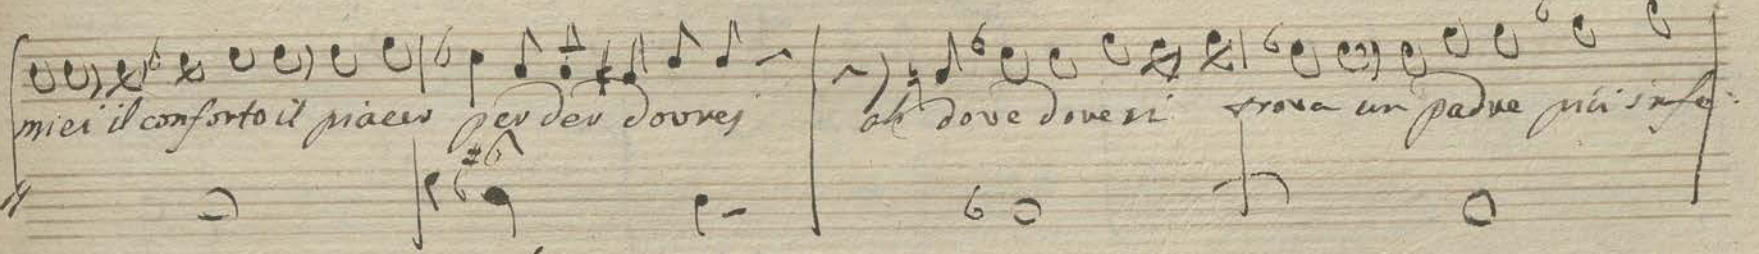 miei il conforto il piacer perder dovrei ah dove dove si trova un padre più infe-
#6
6
6